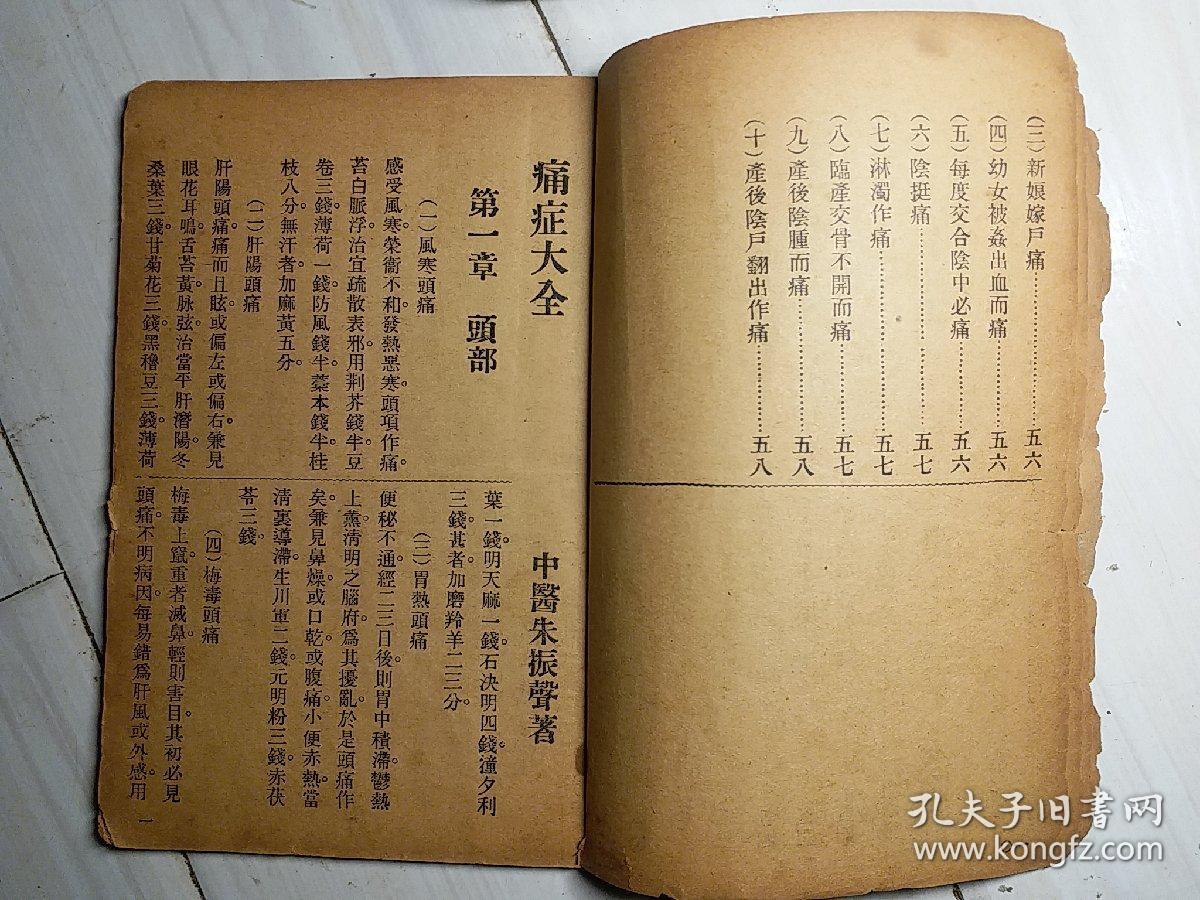 (三)新娘嫁戶痛…………五六
(四)幼女被姦出血而痛…………五六
(五)每度交合陰中必痛…………五六
(六)陰挺痛…………五七
(七)淋濁作痛…………五七
(八)臨產交骨不開而痛…………五七
(九)產後陰腫而痛…………五八
(十)產後陰戶翻出作痛…………五八
痛症大全
中醫朱振聲著
第一章 頭部
(一)風寒頭痛
感受風寒。榮衞不和。發熱惡寒。頭項作痛。
苔白脈浮。治宜疏散表邪。用荆芥錢半。豆
卷三錢。薄荷一錢。防風錢半。藁本錢半。桂
枝八分。無汗者加麻黃五分。
(二)肝陽頭痛
肝陽頭痛。痛而且眩。或偏左或偏右。兼見
眼花耳鳴。舌苔黃。脉弦。治當平肝潛陽。冬
桑葉三錢。甘菊花三錢。黑穭豆三錢。薄荷
葉一錢。明天麻一錢。石決明四錢。潼夕利
三錢。甚者加磨羚羊二三分。
(三)胃熱頭痛
便秘不通。經二三日後。則胃中積滯。鬱熱
上薰。清明之腦府爲其擾亂。於是頭痛作
矣。兼見鼻燥。或口乾。或腹痛。小便赤熱。當
清裏導滯。生川軍二錢。元明粉三錢。赤茯
苓三錢。
(四)梅毒頭痛
梅毒上竄。重者滅鼻。輕則害目。其初必見
頭痛。不明病因。每易錯爲肝風或外感。用
一
孔夫子旧书网
www.kongfz.com